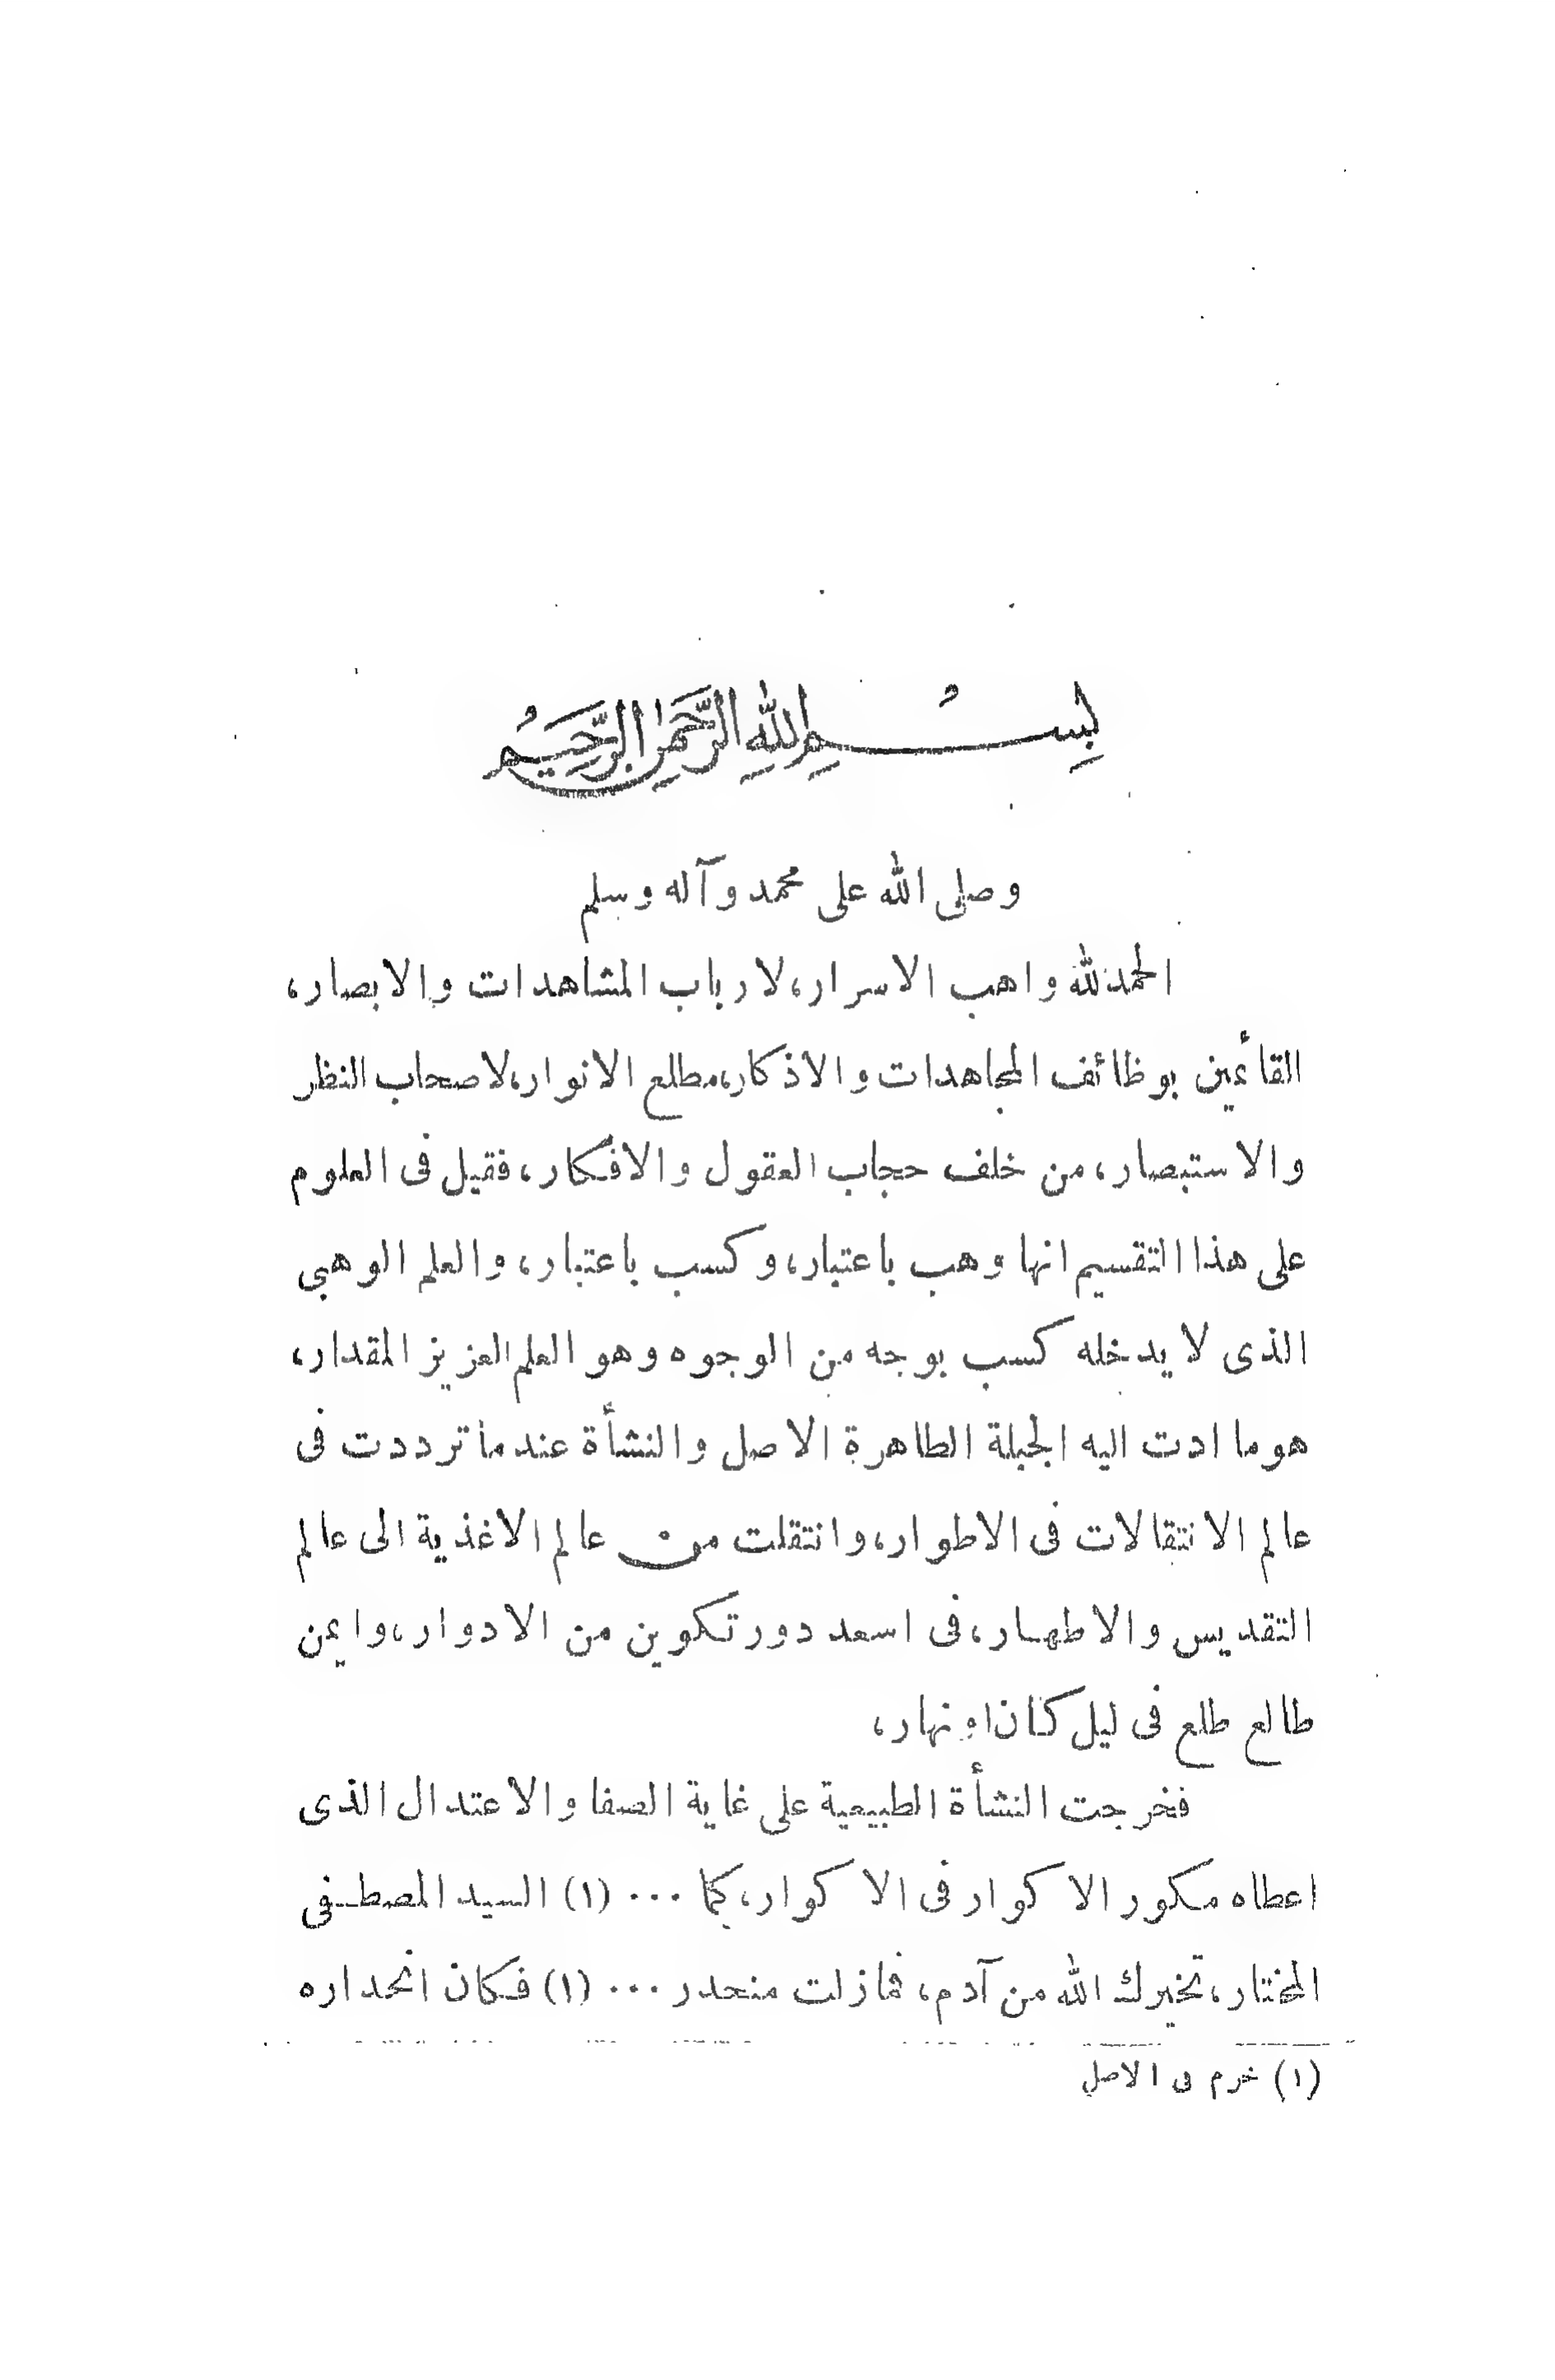 بِسْمِ اللهِ الرَّحْمٰنِ الرَّحِيْمُ
وصلى الله على محمد وآله وسلم
الحمد لله واهب الاسرار، لارباب المشاهدات والابصار،
القائمين بوظائف المجاهدات والاذكار، مطلع الانوار، لاصحاب النظر
والاستبصار، من خلف حجاب العقول والافكار، فقيل فى العلوم
على هذا التقسيم انها وهب باعتبار، وكسب باعتبار، والعلم الوهبى
الذى لا يدخله كسب بوجه من الوجوه وهو العلم العزيز المقدار،
هو ما ادت اليه الجبلة الطاهرة الاصل والنشأة عندما ترددت فى
عالم الانتقالات فى الاطوار، وانتقلت من عالم الاغذية الى عالم
التقديس والاطهار، فى اسعد دور تكوين من الادوار، وايمن
طالع طلع فى ليل كان او نهار،
فخرجت النشأة الطبيعية على غاية الصفا والاعتدال الذى
اعطاه مكور الاكوار فى الاكوار، كما ... (١) السيد المصطفى
المختار، تخيرك الله من آدم، فما زلت منحدر ... (١) فكان انحداره
(١) خرم فى الاصل